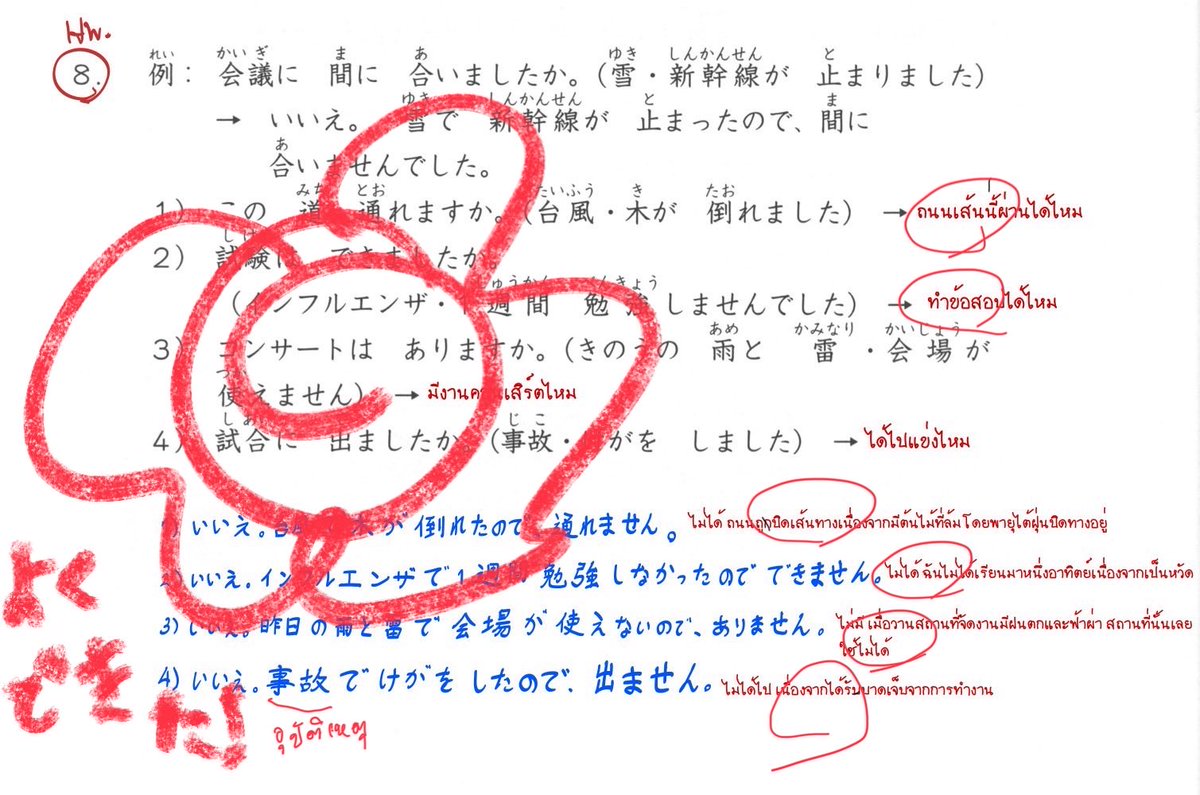 HW.
8. 例： 会議に 間に 合いましたか。（雪・新幹線が 止まりました）
→ いいえ。 雪で 新幹線が 止まったので、間に
合いませんでした。
1） この 道 通れますか。（台風・木が 倒れました） → ถนนเส้นนี้ผ่านได้ไหม
2） 試験は できましたか。
（インフルエンザ・1週間 勉強しませんでした） → ทำข้อสอบได้ไหม
3） コンサートは ありますか。（きのうの 雨と 雷・会場が
使えません） → มีงานคอนเสิร์ตไหม
4） 試合に 出ましたか。（事故・けがを しました） → ได้ไปแข่งไหม
1) いいえ。木が 倒れたので、通れません。 ไม่ได้ ถนนถูกปิดเส้นทางเนื่องจากมีต้นไม้ที่ล้มโดยพายุไต้ฝุ่นปิดทางอยู่
2) いいえ。インフルエンザで1週間 勉強しなかったので できません。 ไม่ได้ ฉันไม่ได้เรียนมาหนึ่งอาทิตย์เนื่องจากเป็นหวัด
3) いいえ。昨日の雨と雷で 会場が 使えないので、ありません。 ไม่มี เมื่อวานสถานที่จัดงานมีฝนตกและฟ้าผ่า สถานที่นั้นเลย
ใช้ไม่ได้
4) いいえ。事故でけがをしたので、出ません。 ไม่ได้ไป เนื่องจากได้รับบาดเจ็บจากการทำงาน
อุบัติเหตุ
よく
できた!